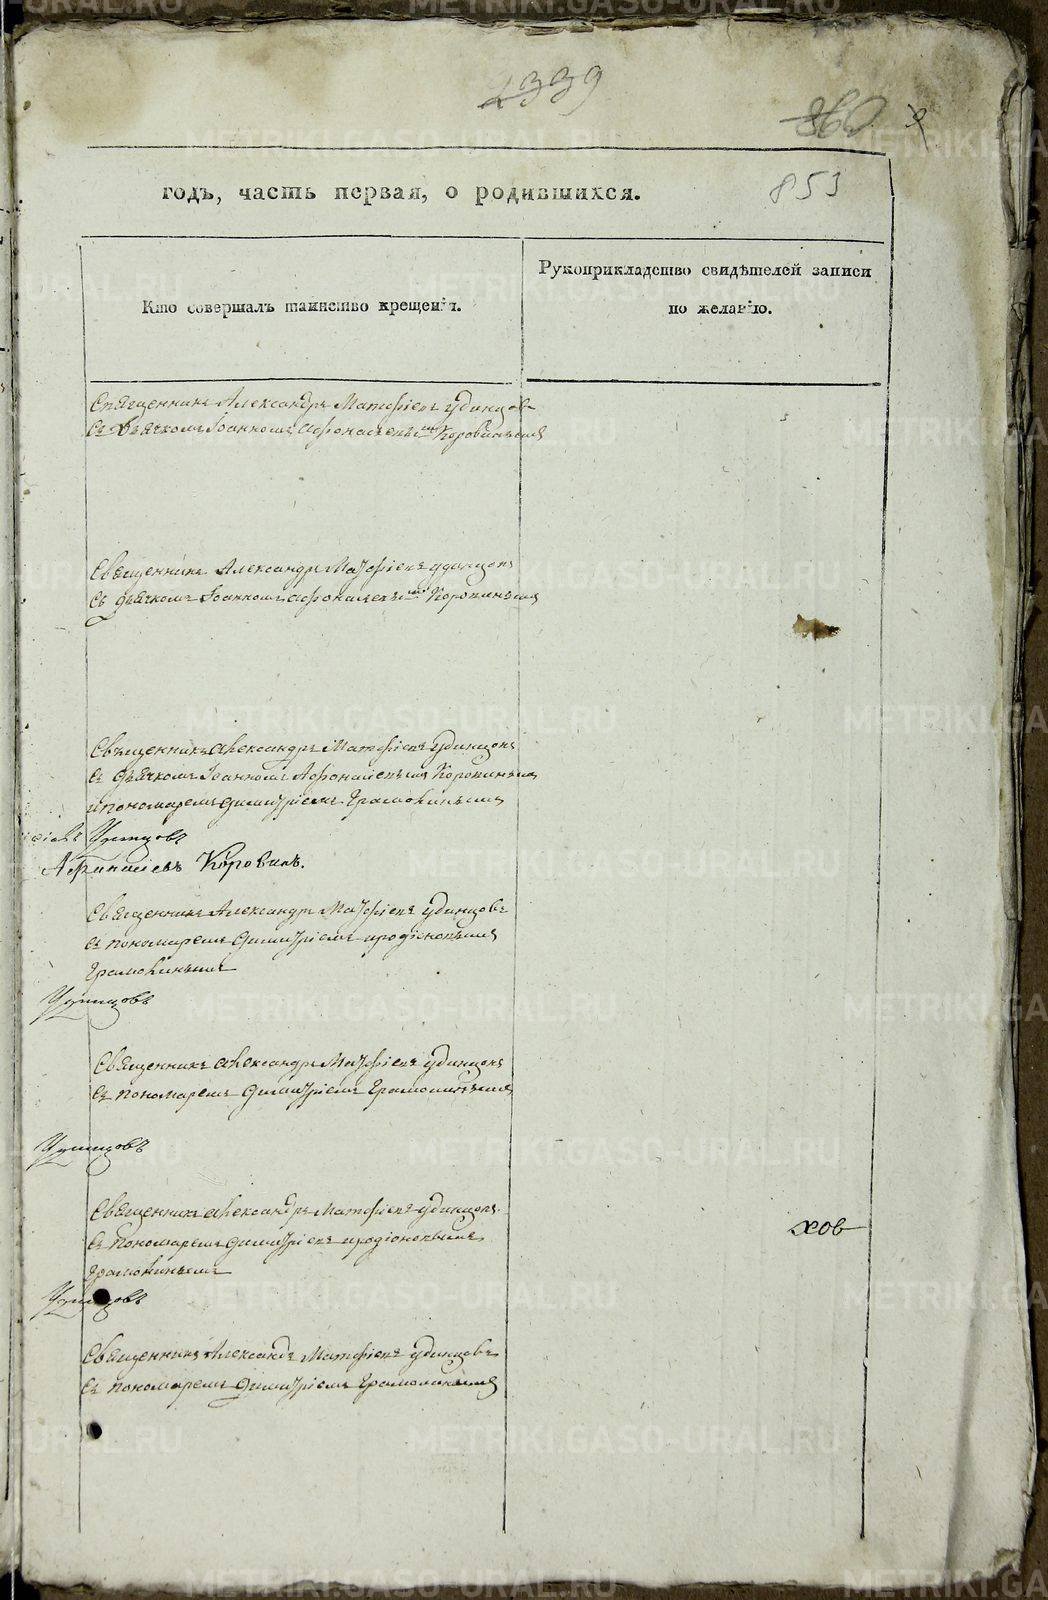 2339
860
853
годъ, часть первая, о родившихся.
Кто совершалъ таинство крещенія.
Рукоприкладство свидѣтелей записи
по желанію.
Священникъ Александръ Матфіевъ Удинцовъ
съ дьячкомъ Іоанномъ Афонасьевымъ Коровинымъ
Священникъ Александръ Матфіевъ Удинцовъ
съ дьячкомъ Іоанномъ Афонасьевымъ Коровинымъ
Священникъ Александръ Матфіевъ Удинцовъ
съ дьячкомъ Іоанномъ Афонасьевымъ Коровинымъ
и пономаремъ Димитріемъ
Удинцовъ
Афанасіевъ Коровинъ.
Священникъ Александръ Матфіевъ Удинцовъ
съ пономаремъ Димитріемъ Иродіоновымъ
Удинцовъ
Священникъ Александръ Матфіевъ Удинцовъ
съ пономаремъ Димитріемъ
Удинцовъ
Священникъ Александръ Матфіевъ Удинцовъ
ховъ
съ пономаремъ Димитріемъ Иродіоновымъ
Священникъ Александръ Матфіевъ Удинцовъ
съ пономаремъ Димитріемъ
METRIKI.GASO-URAL.RU